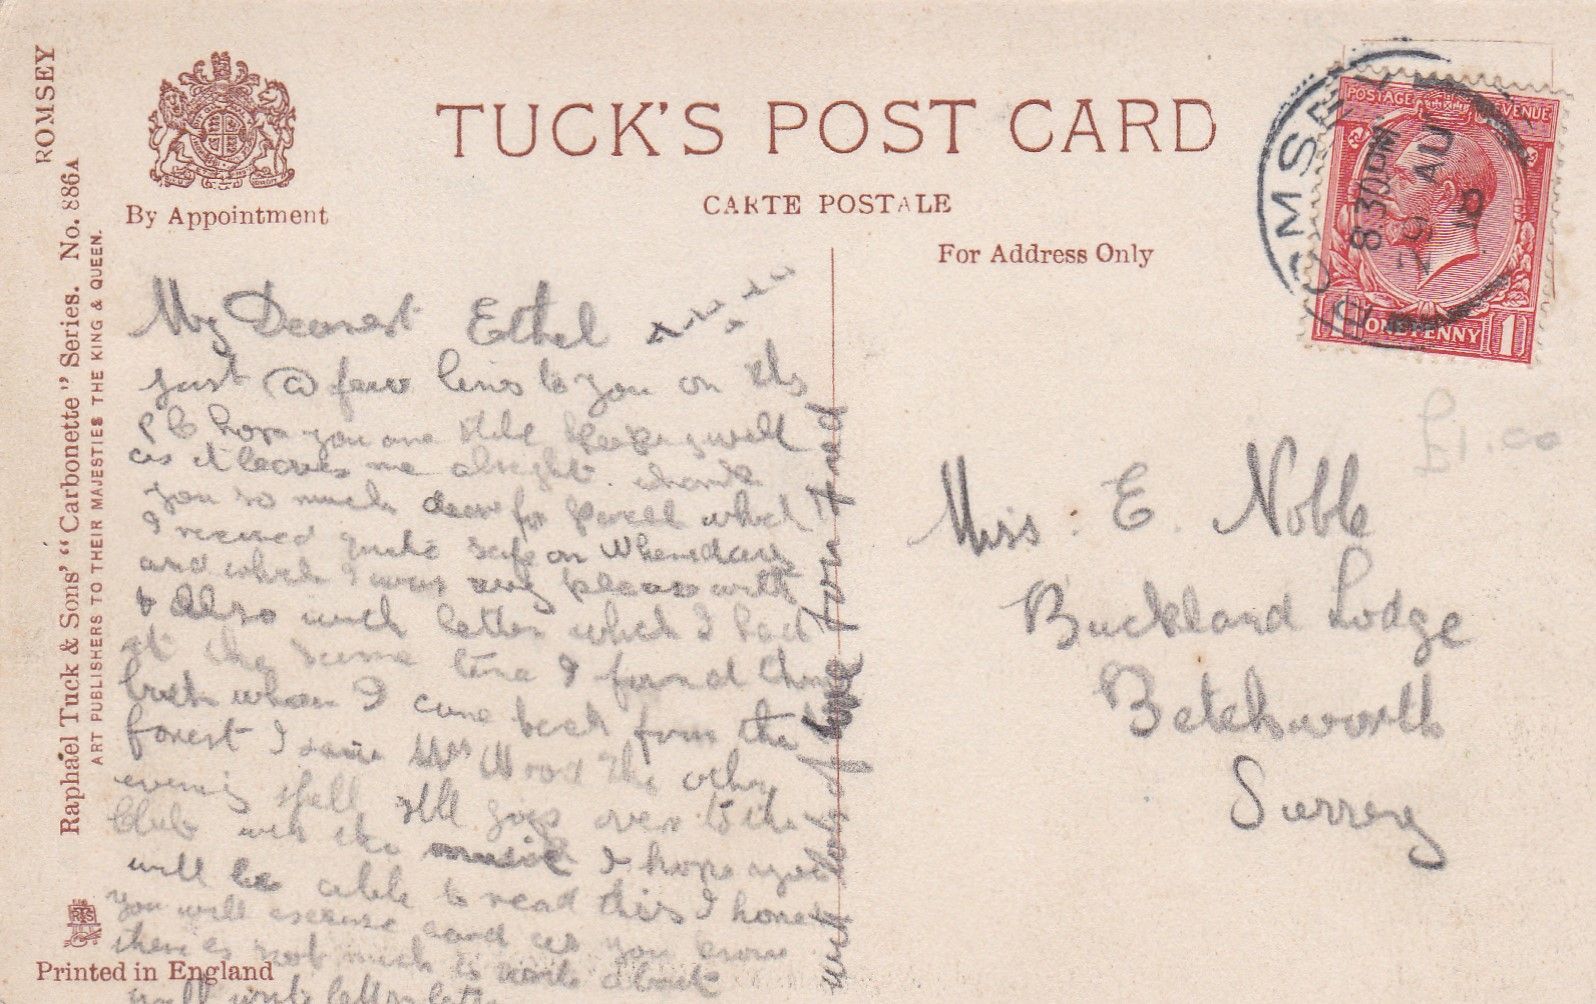 ROMSEY
Raphael Tuck & Sons' "Carbonette" Series. No. 886A
ART PUBLISHERS TO THEIR MAJESTIES THE KING & QUEEN.
By Appointment
TUCK'S POST CARD
CARTE POSTALE
For Address Only
ROMSEY
8.30PM
29 AU
18
POSTAGE REVENUE
1 ONE PENNY 1
£1.00
My Dearest Ethel
Just a few lines to you on this
P C hope you are still keeping well
as it leaves me alright. thank
you so much dear for parcell which
I received quite safe on
and which I was very please with
& Also with letter which I had
at the same time I found them
both when I came back from the
forest I saw Mrs Wood the other
evening still goes over to the
Club with the music I hope
will be able to read this I hope
you will excuse card as you know
there is not much to write about
will write letter later
with lots of love from Fred
Miss. E. Noble
Buckland Lodge
Betchworth
Surrey
Printed in England